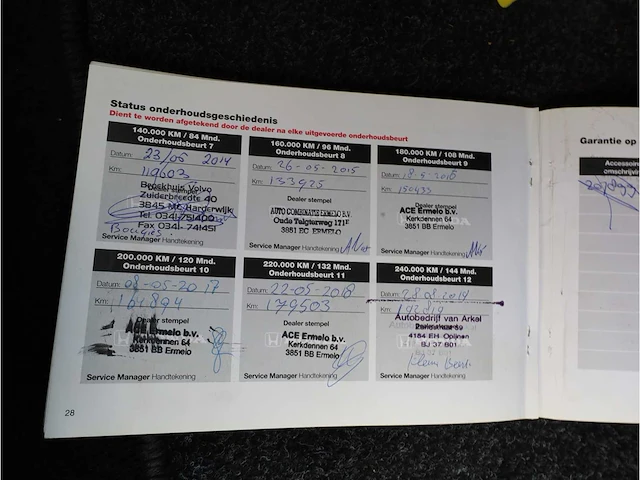 Status onderhoudsgeschiedenis
Dient te worden afgetekend door de dealer na elke uitgevoerde onderhoudsbeurt
140.000 KM / 84 Mnd.
Onderhoudsbeurt 7
Datum: 23/05 2014
Km: 119603
Dealer stempel
Broekhuis Volvo
Zuiderbreedte 40
3845 MC Harderwijk
Tel. 0341-751400
Fax 0341-741451
Bougies.
Service Manager Handtekening
160.000 KM / 96 Mnd.
Onderhoudsbeurt 8
Datum: 26-05-2015
Km: 133925
Dealer stempel
AUTO COMBINATIE ERMELO B.V.
Oude Telgterweg 171F
3851 EC ERMELO
Service Manager Handtekening
180.000 KM / 108 Mnd.
Onderhoudsbeurt 9
Datum: 18-5-2016
Km: 150433
Dealer stempel
ACE Ermelo b.v.
Kerkdennen 64
3851 BB Ermelo
Service Manager Handtekening
200.000 KM / 120 Mnd.
Onderhoudsbeurt 10
Datum: 08-05-2017
Km: 164894
Dealer stempel
ACE Ermelo b.v.
Kerkdennen 64
3851 BB Ermelo
Service Manager Handtekening
220.000 KM / 132 Mnd.
Onderhoudsbeurt 11
Datum: 22-05-2018
Km: 179503
Dealer stempel
ACE Ermelo b.v.
Kerkdennen 64
3851 BB Ermelo
Service Manager Handtekening
240.000 KM / 144 Mnd.
Onderhoudsbeurt 12
Datum: 28 08 2019
Km:
Autobedrijf van Arkel
4184 EH Opijnen
Service Manager Handtekening
28
Garantie op
Accessoire
omschrijvi